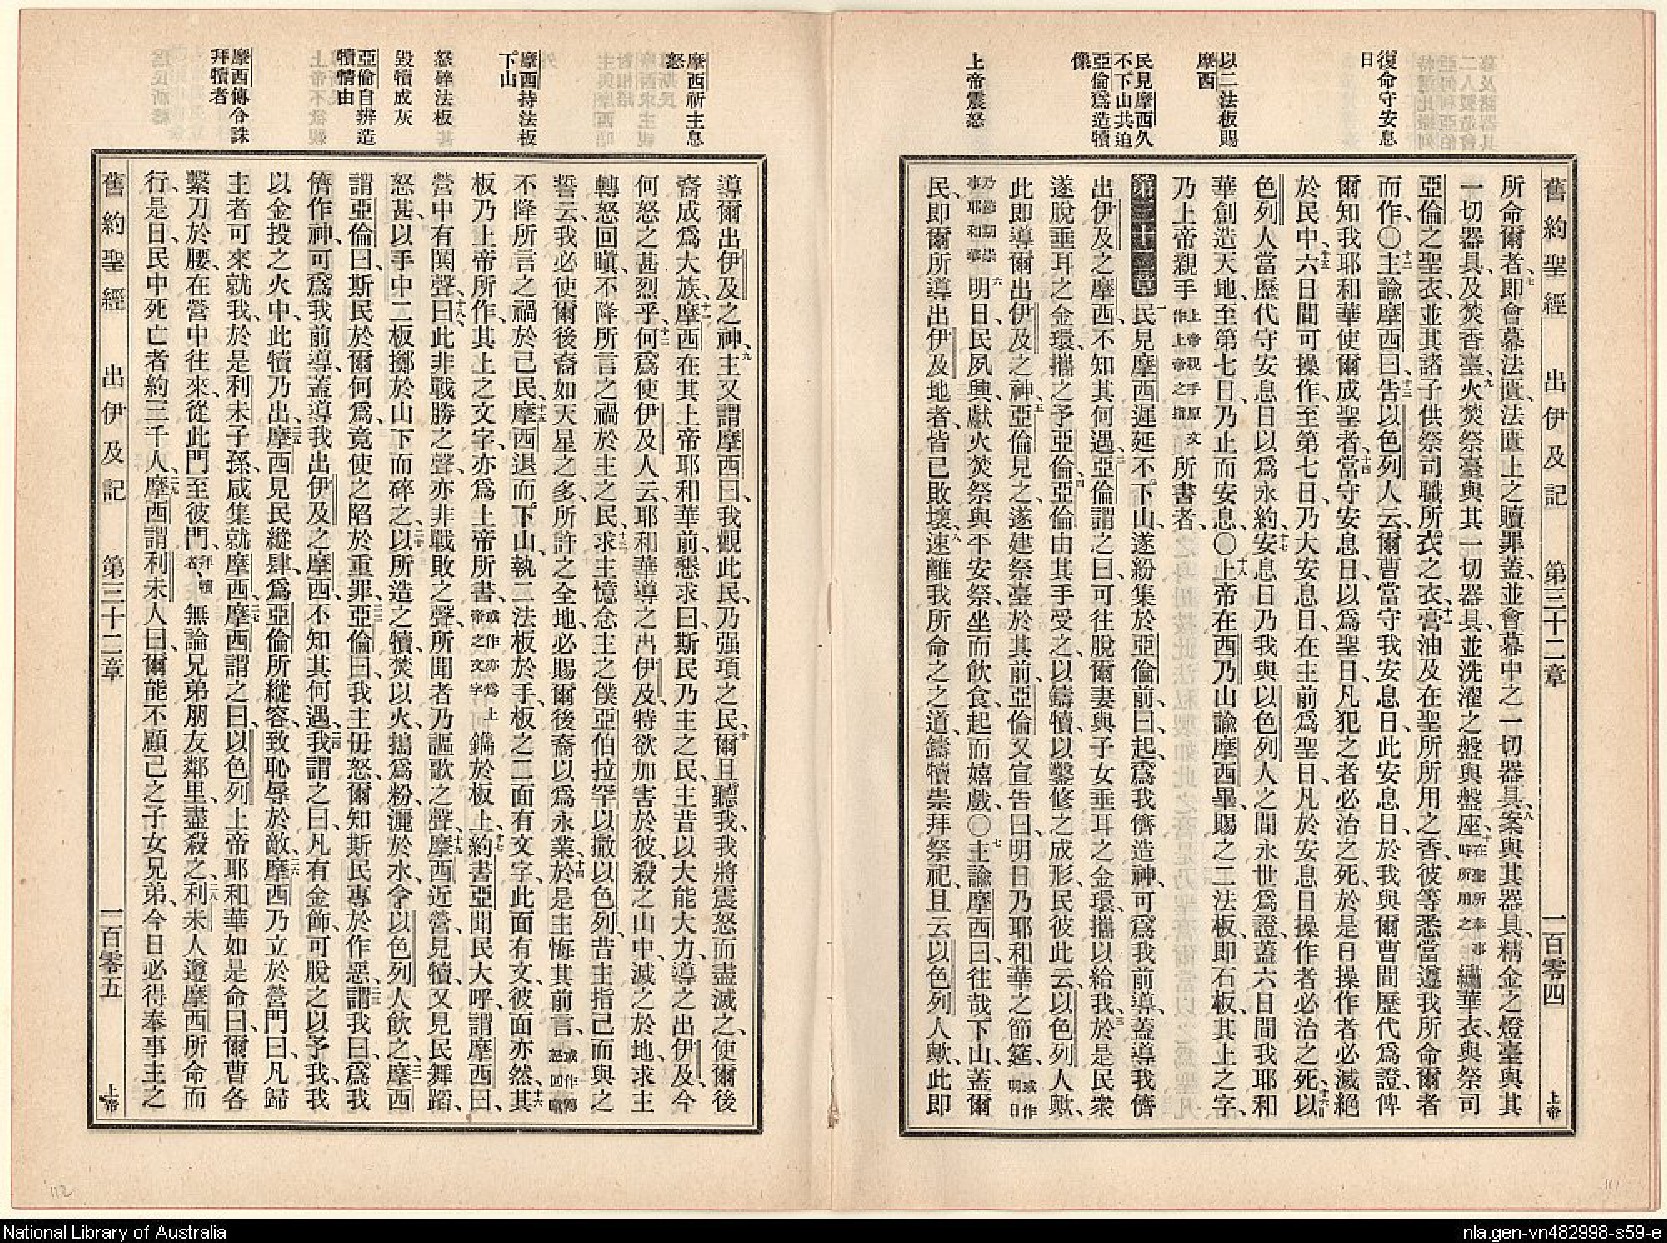 復命守安息日
以二法板賜摩西
民見摩西久不下山共迫亞倫爲造犢像
上帝震怒
舊約聖經 出伊及記 第三十二章 一百零四 上帝
所命爾者、七卽會幕、法匱、法匱上之贖罪蓋、並會幕中之一切器具、八案與其器具、精金之燈臺與其
一切器具、及焚香臺、九火焚祭臺與其一切器具、並洗濯之盤與盤座、十在聖所奉事時所用之繡華衣、與祭司
亞倫之聖衣、並其諸子供祭司職所衣之衣、十一膏油及在聖所所用之香、彼等悉當遵我所命爾者
而作、〇十二主諭摩西曰、十三告以色列人云、爾曹當守我安息日、此安息日、於我與爾曹間歷代爲證、俾
爾知我耶和華使爾成聖者、十四當守安息日、以爲聖日、凡犯之者必治之死、於是日操作者必滅絕
於民中、十五六日間可操作、至第七日、乃大安息日、在主前爲聖日、凡於安息日操作者必治之死、十六以
色列人當歷代守安息日、以爲永約、十七安息日乃我與以色列人之間永世爲證、蓋六日間我耶和
華創造天地、至第七日、乃止而安息、〇十八上帝在西乃山諭摩西畢、賜之二法板、卽石板、其上之字、
乃上帝親手上帝親手原文作上帝之指所書者、
第三十二章 一民見摩西遲延不下山、遂紛集於亞倫前、曰、起、爲我儕造神、可爲我前導、蓋導我儕
出伊及之摩西、不知其何遇、二亞倫謂之曰、可往脫爾妻與子女垂耳之金環、攜以給我、三於是民衆
遂脫垂耳之金環、攜之予亞倫、四亞倫由其手受之、以鑄犢、以鑿修之成形、民彼此云、以色列人歟、
此卽導爾出伊及之神、五亞倫見之、遂建祭臺於其前、亞倫又宣告曰、明日乃耶和華之節筵、或作明日
乃節期崇事耶和華六明日民夙興、獻火焚祭與平安祭、坐而飲食、起而嬉戲、〇七主諭摩西曰、往哉下山、蓋爾
民、卽爾所導出伊及地者、皆已敗壞、八速離我所命之之道、鑄犢崇拜祭祀、且云以色列人歟、此卽
摩西祈主息怒
摩西持法板下山
怒碎法板
毀犢成灰
亞倫自辨造犢情由
摩西傳令誅拜犢者
導爾出伊及之神、九主又謂摩西曰、我觀此民、乃强項之民、十爾且聽我、我將震怒而盡滅之、使爾後
裔成爲大族、十一摩西在其上帝耶和華前懇求曰、斯民乃主之民、主昔以大能大力導之出伊及、今
何怒之甚烈乎、十二何爲使伊及人云、耶和華導之出伊及、特欲加害於彼、殺之山中、滅之於地、求主
轉怒回瞋、不降所言之禍於主之民、十三求主憶念主之僕亞伯拉罕以撒以色列、昔主指己而與之
誓云、我必使爾後裔如天星之多、所許之全地、必賜爾後裔以爲永業、十四於是主悔其前言、或作轉怒回瞋
不降所言之禍於己民、十五摩西退而下山、執二法板於手、板之二面有文字、此面有文、彼面亦然、十六其
板乃上帝所作、其上之文字、亦爲上帝所書、或作亦爲上帝之文字鐫於板上、十七約書亞聞民大呼、謂摩西曰、
營中有鬨聲、十八曰、此非戰勝之聲、亦非戰敗之聲、所聞者乃謳歌之聲、十九摩西近營、見犢、又見民舞蹈、
怒甚、以手中二板擲於山下而碎之、二十以所造之犢、焚以火、搗爲粉、灑於水、令以色列人飲之、二一摩西
謂亞倫曰、斯民於爾何爲、竟使之陷於重罪、二二亞倫曰、我主毋怒、爾知斯民專於作惡、二三謂我曰、爲我
儕作神、可爲我前導、蓋導我出伊及之摩西、不知其何遇、二四我謂之曰、凡有金飾、可脫之以予我、我
以金投之火中、此犢乃出、二五摩西見民縱肆、爲亞倫所縱容、致恥辱於敵、二六摩西乃立於營門曰、凡歸
主者可來就我、於是利未子孫咸集就摩西、二七摩西謂之曰、以色列上帝耶和華如是命曰、爾曹各
繫刀於腰、在營中往來、從此門至彼門、拜犢者無論兄弟朋友鄰里、盡殺之、二八利未人遵摩西所命而
行、是日民中死亡者約三千人、二九摩西謂利未人曰、爾能不顧己之子女兄弟、今日必得奉事主之
舊約聖經 出伊及記 第三十二章 一百零五 上帝
112
111
National Library of Australia
nla.gen-vn482998-s59-e